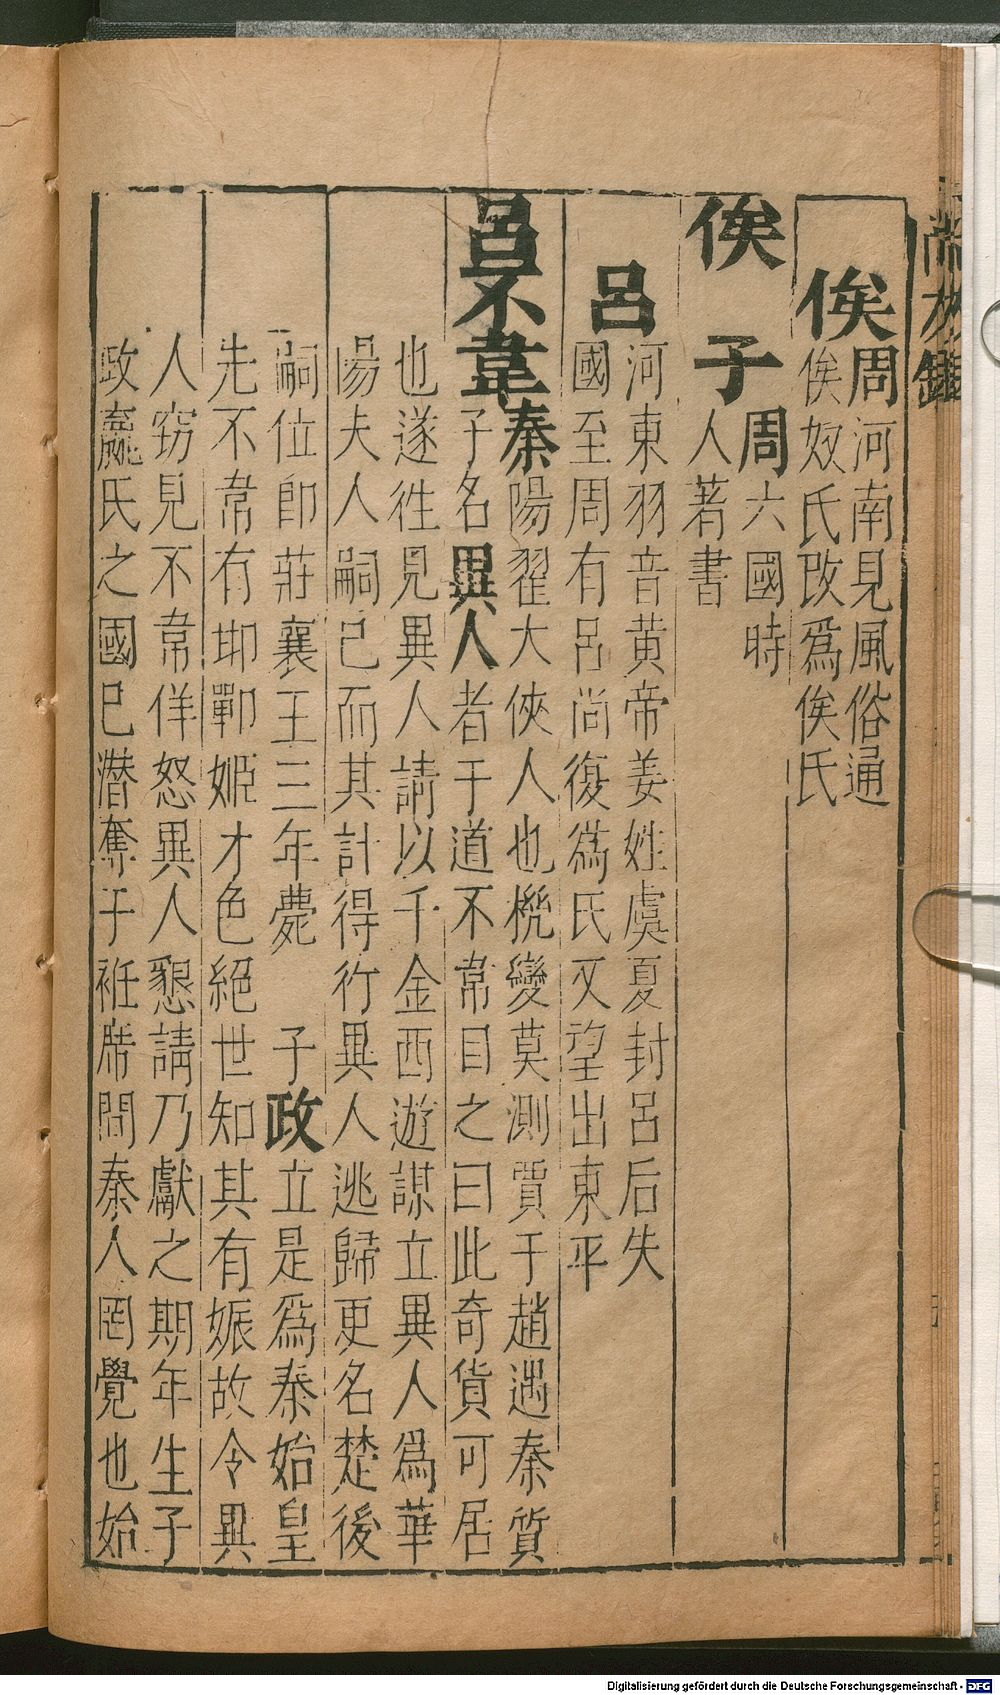 俟
周河南見風俗通
俟奴氏改爲俟氏
俟子
周六國時
人著書
呂
河東羽音黄帝姜姓虞夏封呂后失
國至周有呂尚復爲氏又望出東平
呂不韋
秦陽翟大俠人也機變莫測賈于趙遇秦質
子名異人者于道不韋目之曰此奇貨可居
也遂徃見異人請以千金西遊謀立異人爲華
陽夫人嗣已而其計得行異人逃歸更名楚後
嗣位卽莊襄王三年薨 子政立是爲秦始皇
先不韋有邯鄲姬才色絕世知其有娠故令異
人窃見不韋佯怒異人懇請乃獻之期年生子
政嬴氏之國已潛奪于袵席間秦人罔覺也始
Digitalisierung gefördert durch die Deutsche Forschungsgemeinschaft - DFG